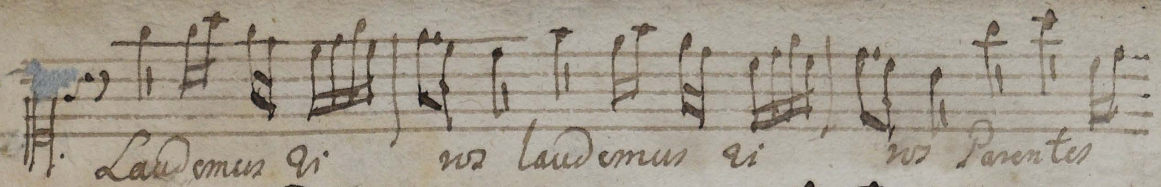 Laudemus Vi ros laudemus Vi ros Parentes